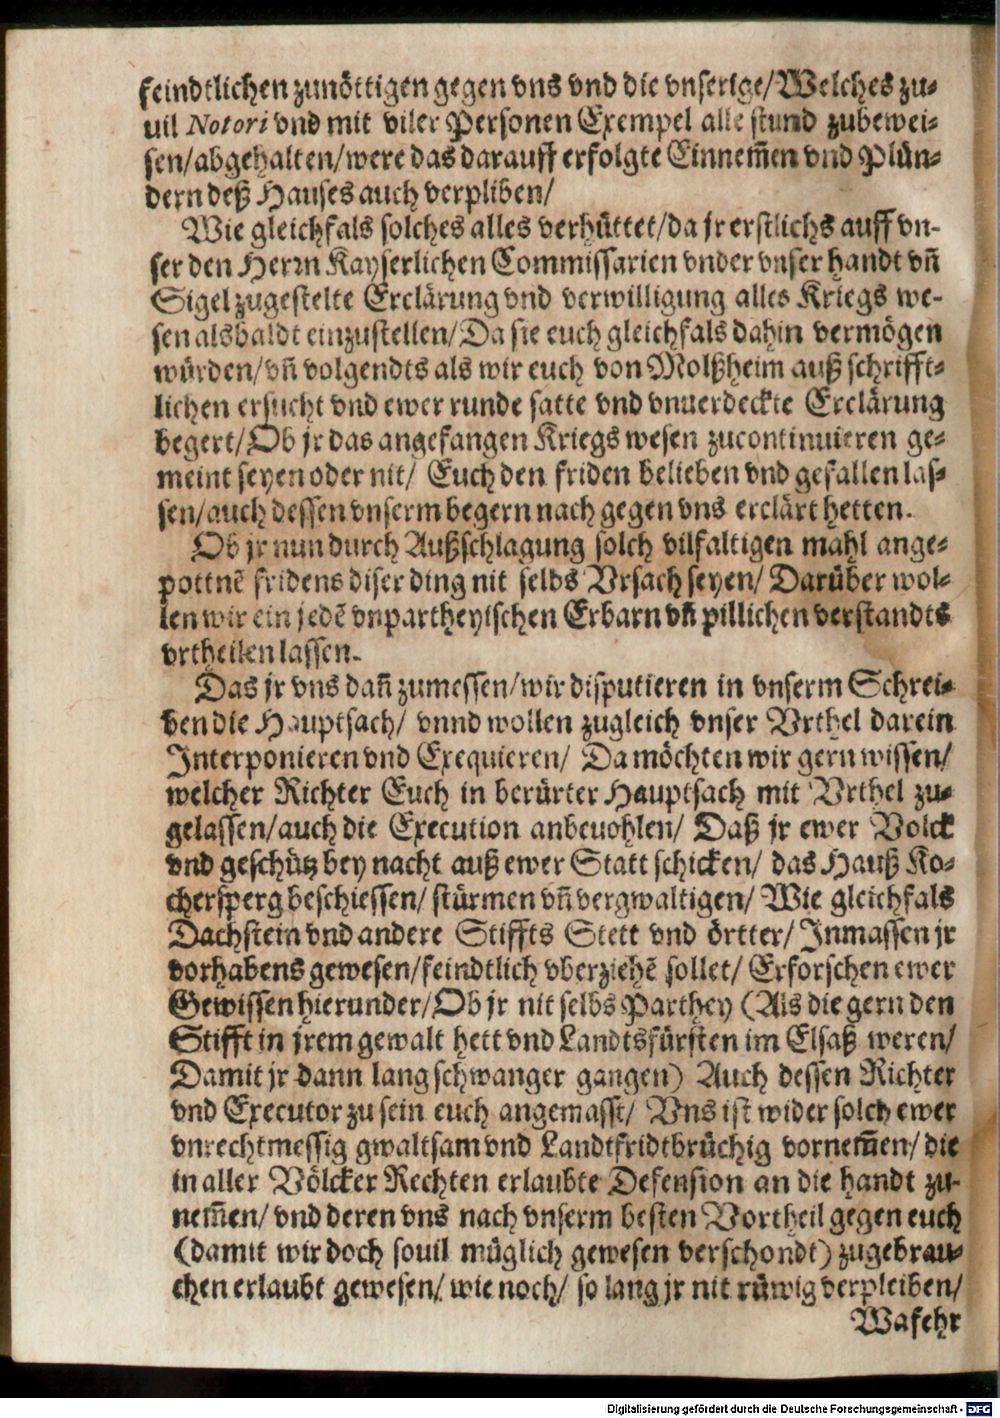 feindtlichen zunöttigen gegen vns vnd die vnserige/Welches zu-
uil Notori vnd mit viler Personen Exempel alle stund zubewei-
sen/abgehalten/were das darauff erfolgte Einnem̄en vnd Plün-
dern deß Hauses auch verpliben/
Wie gleichfals solches alles verhüttet/da jr erstlichs auff vn-
ser den Herrn Kayserlichen Commissarien vnder vnser handt vn̄
Sigel zugestelte Erclärung vnd verwilligung alles Kriegs we-
sen alsbaldt einzustellen/Da sie euch gleichfals dahin vermögen
würden/vn̄ volgendts als wir euch von Molßheim auß schrifft-
lichen ersucht vnd ewer runde satte vnd vnuerdeckte Erclärung
begert/Ob jr das angefangen Kriegs wesen zucontinuieren ge-
meint seyen oder nit/ Euch den friden belieben vnd gefallen las-
sen/auch dessen vnserm begern nach gegen vns erclärt hetten.
Ob jr nun durch Außschlagung solch vilfaltigen mahl ange-
pottnē fridens diser ding nit selbs Vrsach seyen/ Darüber wol-
len wir ein jedē vnpartheyischen Erbarn vn̄ pillichen verstandts
vrtheilen lassen.
Das jr vns dan̄ zumessen/wir disputieren in vnserm Schrei-
ben die Hauptsach/ vnnd wollen zugleich vnser Vrthel darein
Interponieren vnd Exequieren/ Da möchten wir gern wissen/
welcher Richter Euch in berürter Hauptsach mit Vrthel zu-
gelassen/auch die Execution anbeuohlen/ Daß jr ewer Volck
vnd geschütz bey nacht auß ewer Statt schicken/ das Hauß Ko-
chersperg beschiessen/ stürmen vn̄ vergwaltigen/ Wie gleichfals
Dachstein vnd andere Stiffts Stett vnd örtter/ Inmassen jr
vorhabens gewesen/feindtlich vberziehē sollet/ Erforschen ewer
Gewissen hierunder/Ob jr nit selbs Parthey (Als die gern den
Stifft in jrem gewalt hett vnd Landtsfürsten im Elsaß weren/
Damit jr dann lang schwanger gangen) Auch dessen Richter
vnd Executor zu sein euch angemasst/ Vns ist wider solch ewer
vnrechtmessig gwaltsam vnd Landtfridtbrüchig vornem̄en/ die
in aller Völcker Rechten erlaubte Defension an die handt zu-
nem̄en/ vnd deren vns nach vnserm besten Vortheil gegen euch
(damit wir doch souil müglich gewesen verschondt) zugebrau-
chen erlaubt gewesen/ wie noch/ so lang jr nit rüwig verpleiben/
Wafehr
Digitalisierung gefördert durch die Deutsche Forschungsgemeinschaft - DFG